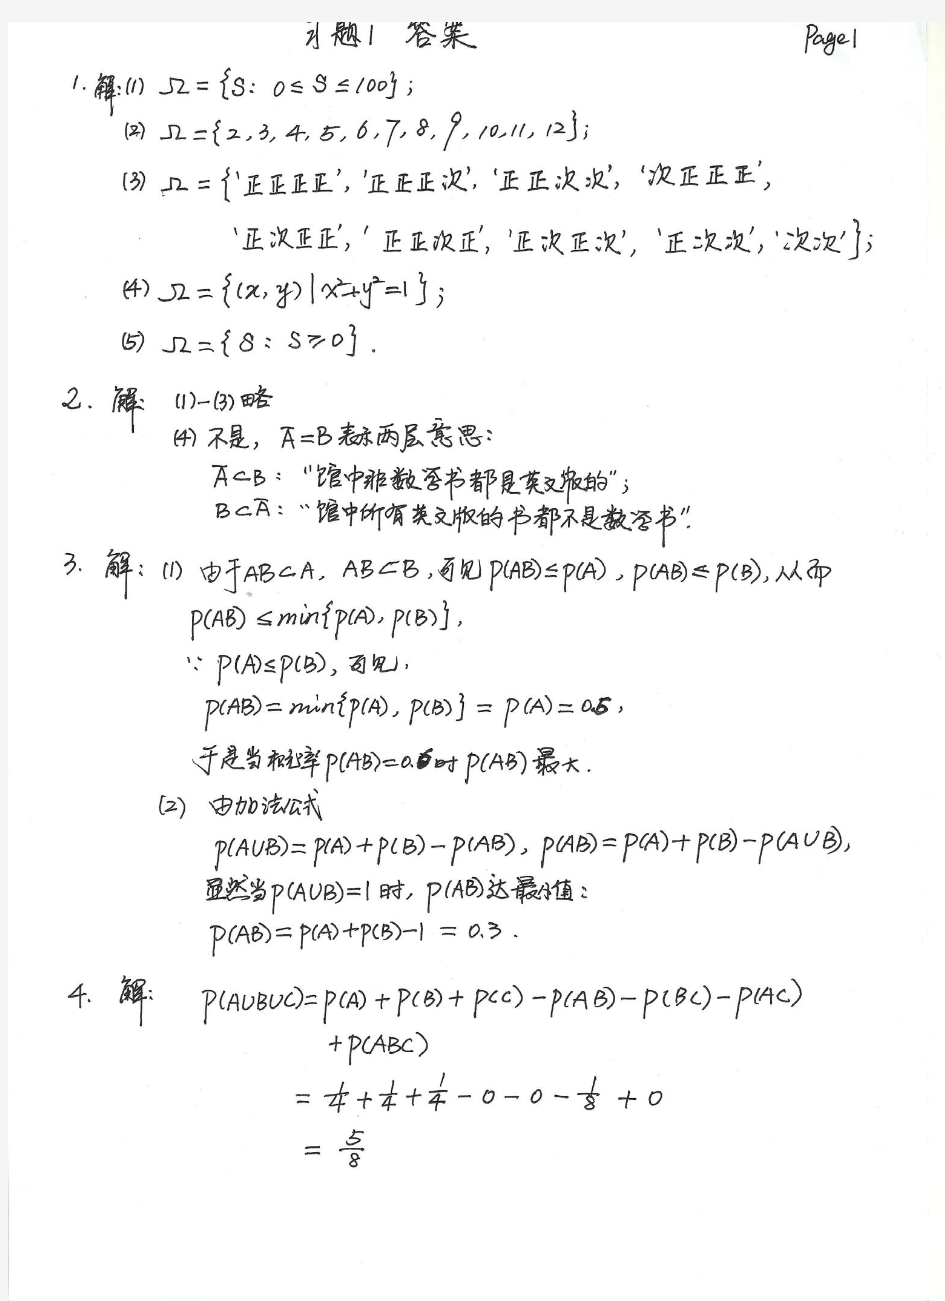 习题1 答案 Page1
1. 解:(1) Ω={S: 0≤S≤100};
(2) Ω={2,3,4,5,6,7,8,9,10,11,12};
(3) Ω={'正正正正','正正正次','正正次次','次正正正',
'正次正正','正正次正','正次正次','正次次','次次'};
(4) Ω={(x,y)|x²+y²=1};
(5) Ω={S: S≥0}.
2. 解: (1)-(3)略
(4) 不是, Ā=B表示两层意思:
Ā⊂B: "馆中非数学书都是英文版的";
B⊂Ā: "馆中所有英文版的书都不是数学书".
3. 解: (1) 由于AB⊂A, AB⊂B,可见P(AB)≤P(A), P(AB)≤P(B),从而
P(AB)≤min{P(A), P(B)},
∵ P(A)≤P(B),可见,
P(AB)=min{P(A), P(B)}=P(A)=0.6,
于是当概率P(AB)=0.6时P(AB)最大.
(2) 由加法公式
P(A∪B)=P(A)+P(B)-P(AB), P(AB)=P(A)+P(B)-P(A∪B),
显然当P(A∪B)=1时, P(AB)达最小值:
P(AB)=P(A)+P(B)-1=0.3.
4. 解: P(A∪B∪C)=P(A)+P(B)+P(C)-P(AB)-P(BC)-P(AC)
+P(ABC)
=1/4+1/4+1/4-0-0-1/8+0
=5/8